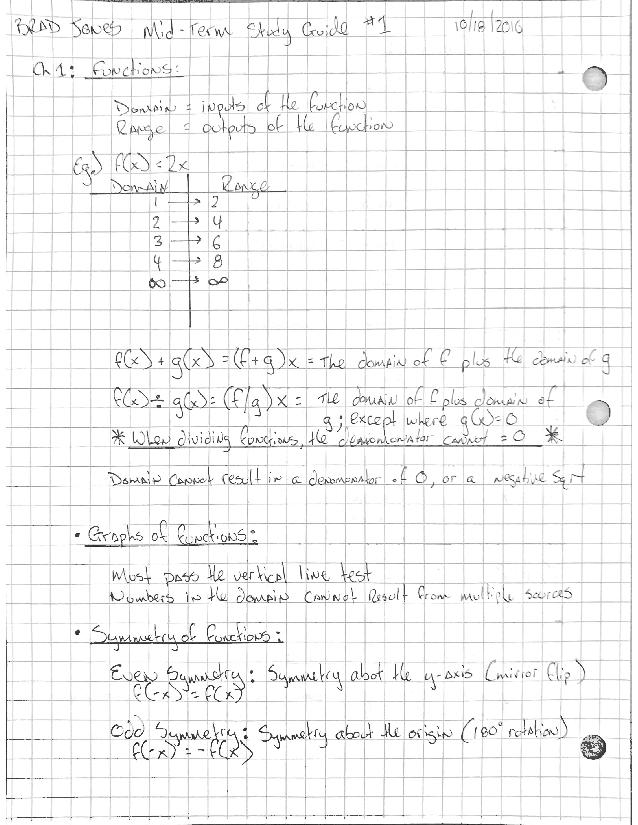 BRAD JONES Mid-Term Study Guide #1 10/18/2016
Ch 1: Functions:
Domain = inputs of the function
Range = outputs of the function
Eg.) f(x) = 2x
Domain Range
1 → 2
2 → 4
3 → 6
4 → 8
∞ → ∞
f(x) + g(x) = (f+g)x = The domain of f plus the domain of g
f(x) ÷ g(x) = (f/g)x = The domain of f plus domain of
g; except where g(x)=0
* When dividing functions, the denomoniator cannot = 0 *
Domain cannot result in a denomonator of 0, or a negative Sqrt
• Graphs of functions:
Must pass the vertical line test
Numbers in the domain cannot result from multiple sources
• Symmetry of functions:
Even Symmetry: Symmetry abot the y-axis (mirror flip)
f(-x) = f(x)
Odd Symmetry: Symmetry about the origin (180° rotation)
f(-x) = -f(x)